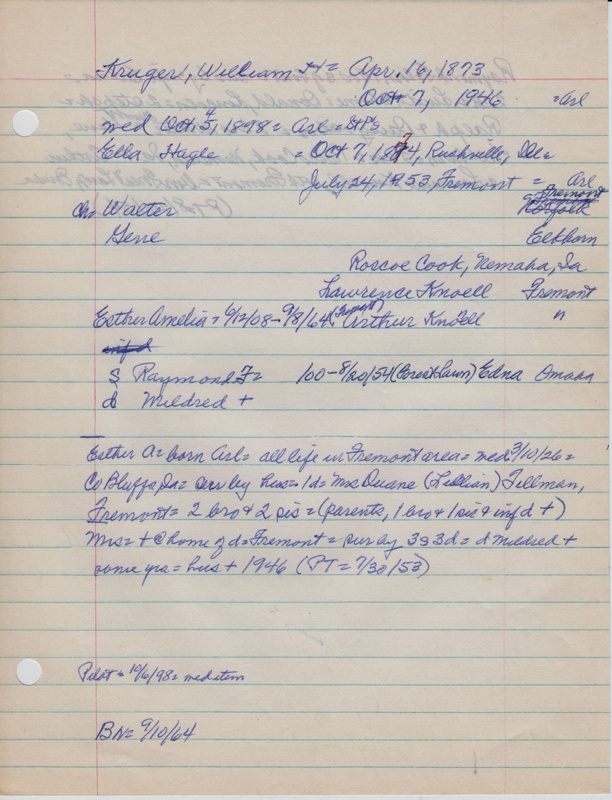 Kruger, William H = Apr. 16, 1873
Oct 7, 1946 = Arl
med Oct. 5, 1898 = Arl = St P's
Ella Hagle = Oct 7, 1874, Rushville, Ill =
July 24, 1953, Fremont = Arl
Ch = Walter = Fremont Norfolk
Gene Elkhorn
Roscoe Cook, Nemaha, Ia
Lawrence Knoell Fremont
Esther Amelia = 6/12/08 - 9/8/64 (Fremont) Arthur Knoell "
inf d
S Raymond F = 100 - 8/20/54 (Forest Lawn) Edna Omaha
d Mildred +
Esther A = born Arl = all life in Fremont area = med 3/10/26 =
Co Bluffs, Ia = sur by hus = 1d = Mrs Duane (Lillian) Tillman,
Fremont = 2 bro & 2 sis = (parents, 1 bro & 1 sis & inf d +)
Mrs = + @ home of d = Fremont = sur by 3s 3d = d Mildred +
some yrs = hus + 1946 (PT = 7/30/53)
Pilot = 10/6/98 = med item
BN = 9/10/64